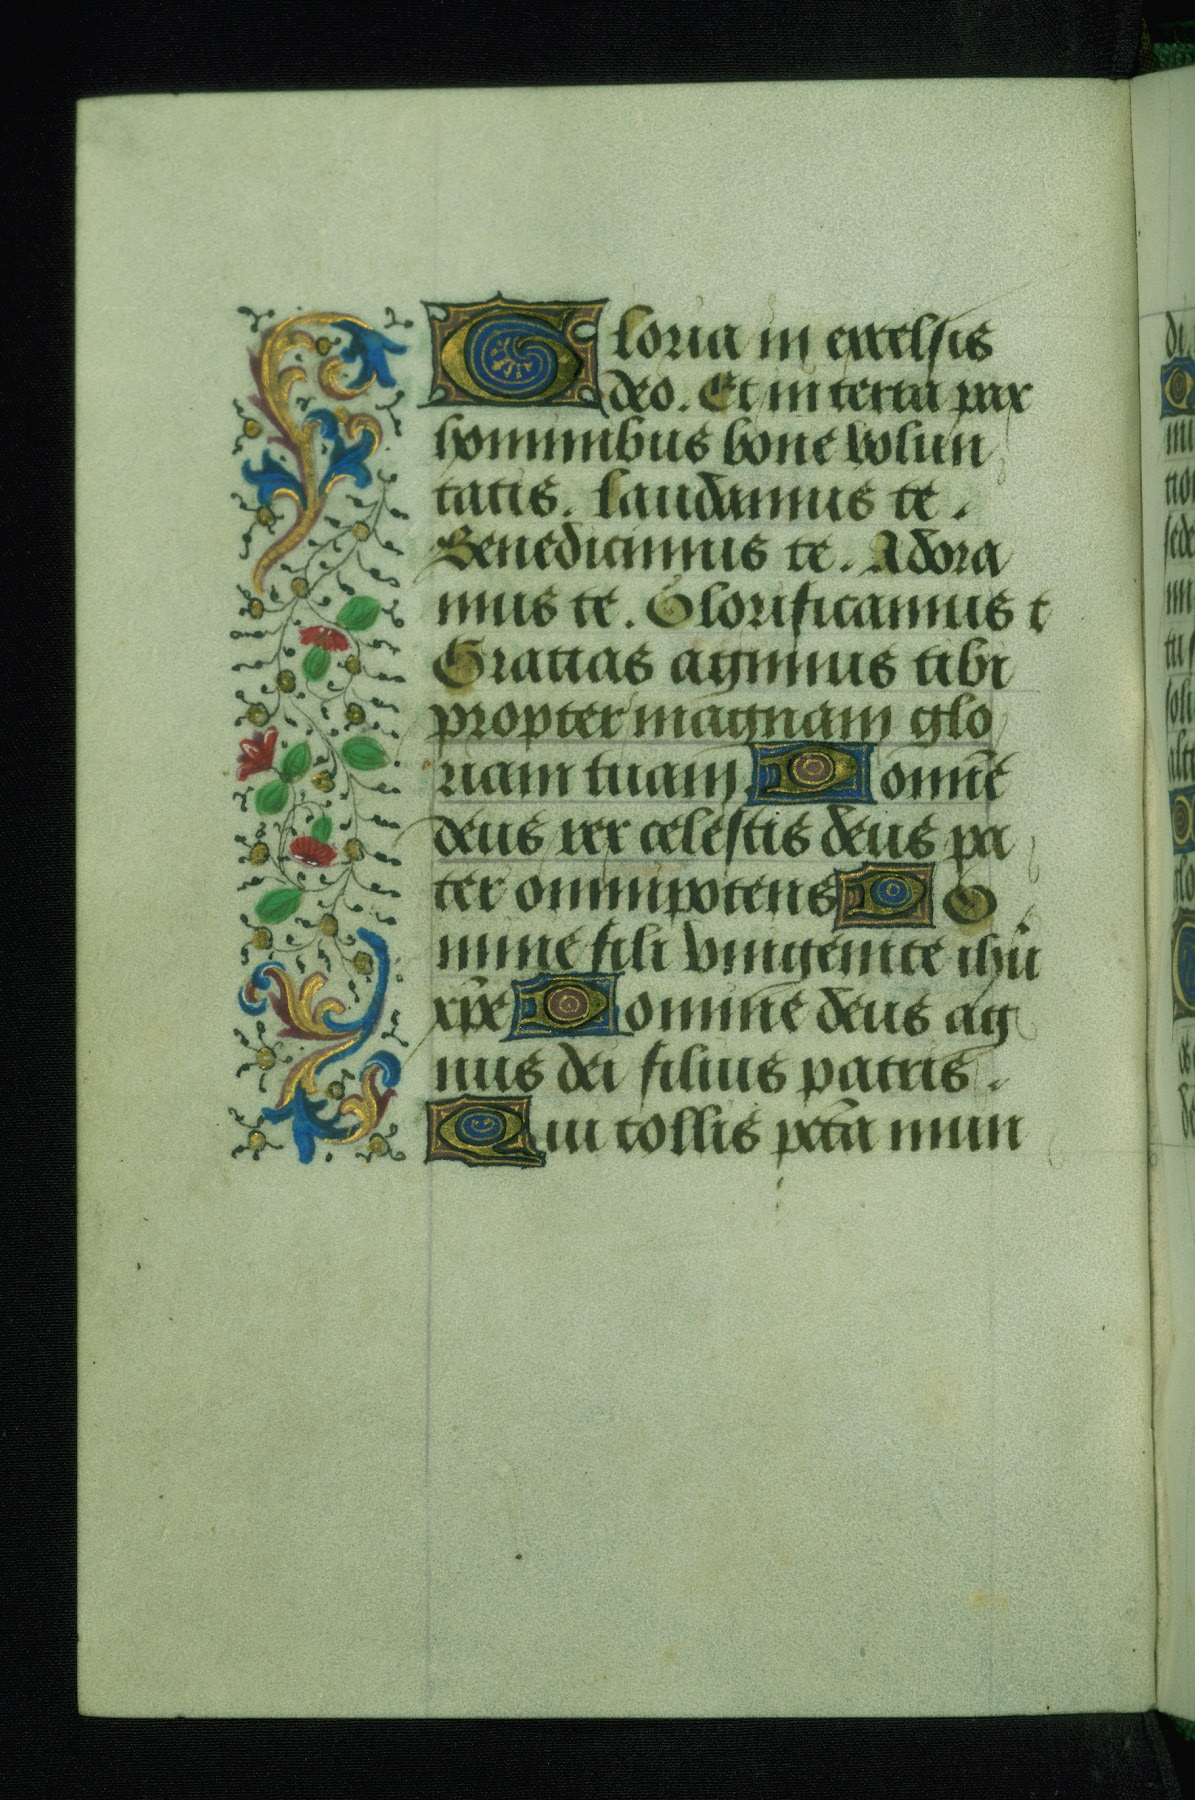 Gloria in excelsis
deo. Et in terra pax
hominibus bone volun
tatis. laudamus te.
Benedicimus te. Adora
mus te. Glorificamus t
Gratias agimus tibi
propter magnam glo
riam tuam. Domīe
deus rex celestis deus pa
ter omnipotens D O
mine fili vnigenite ihū
xp̄e Domine deus ag
nus dei filius patris.
Qui tollis pctā mun